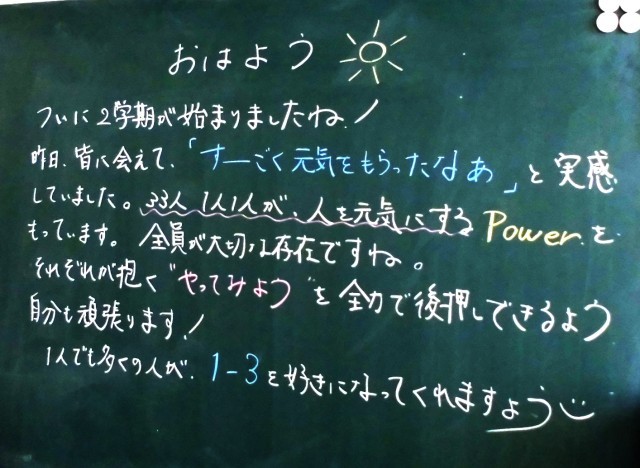 おはよう
ついに2学期が始まりましたね!
昨日、皆に会えて、「すーごく元気をもらったなぁ」と実感
していました。33人 1人1人が、人を元気にするPowerを
もっています。全員が大切な存在ですね。
それぞれが抱く"やってみよう"を全力で後押しできるよう
自分も頑張ります!
1人でも多くの人が、1-3を好きになってくれますよう